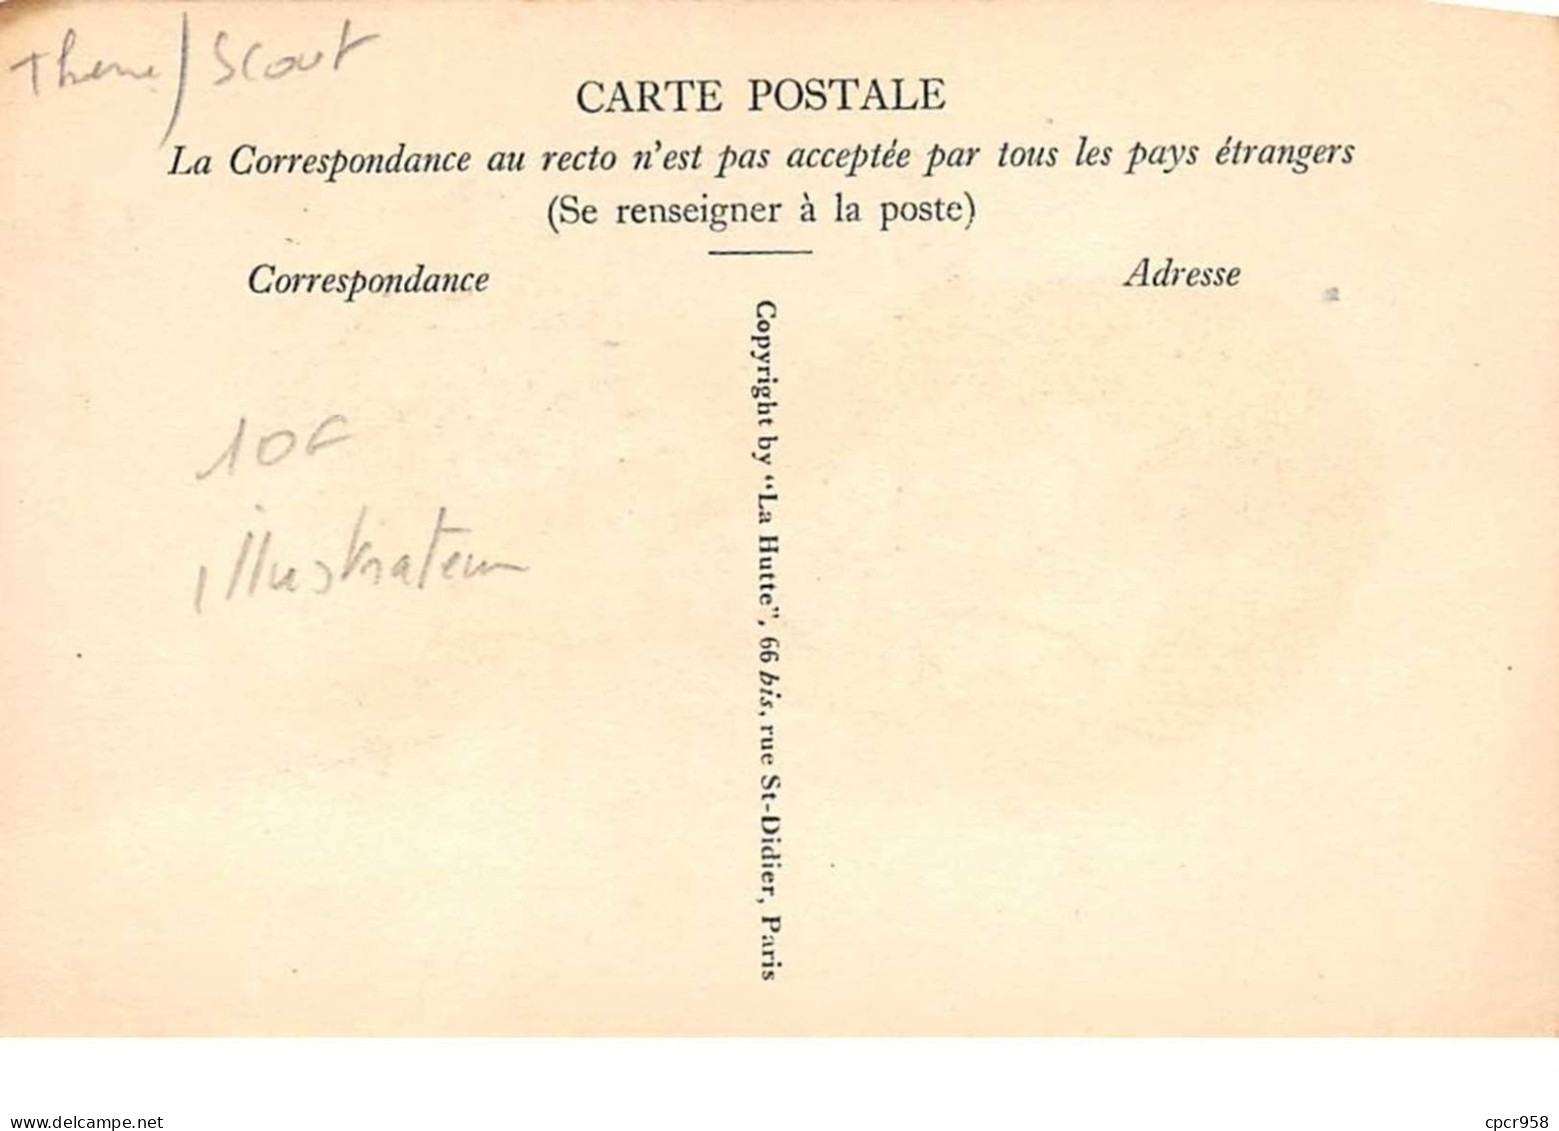 Theme / Scout
CARTE POSTALE
La Correspondance au recto n'est pas acceptée par tous les pays étrangers
(Se renseigner à la poste)
Correspondance
Adresse
Copyright by “La Hutte”, 66 bis, rue St-Didier, Paris
10€
illustrateur
www.delcampe.net
cpcr958